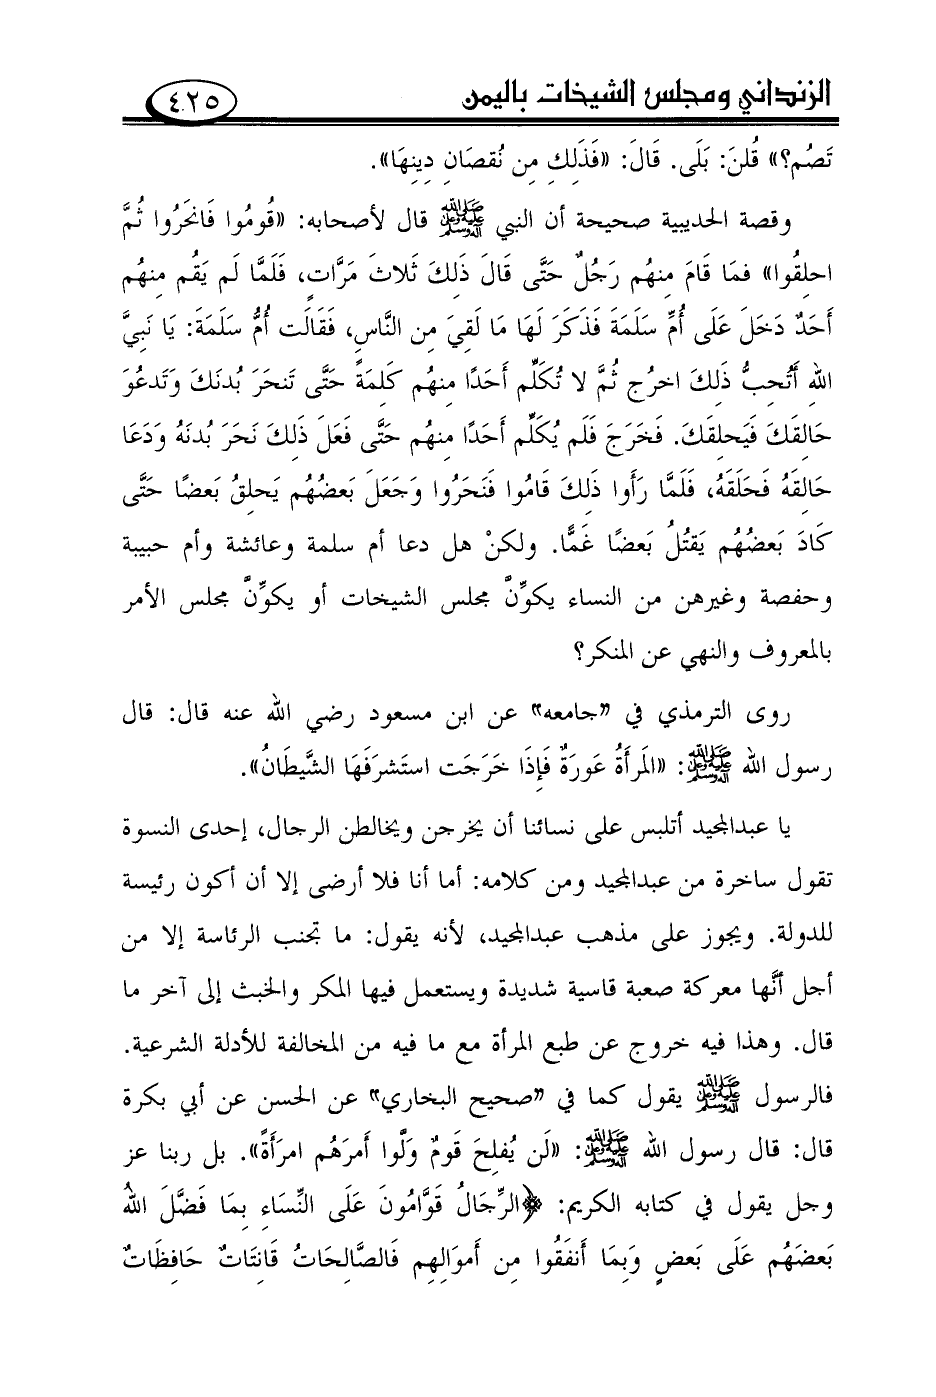 الزنداني ومجلس الشيخات باليمن ٤٢٥
تَصُم؟» قُلنَ: بَلَى. قَالَ: «فَذَلِكِ مِن نُقصَانِ دِينِهَا».
وقصة الحديبية صحيحة أن النبي ﷺ قال لأصحابه: «قُومُوا فَانحَرُوا ثُمَّ
احلِقُوا» فمَا قَامَ مِنهُم رَجُلٌ حَتَّى قَالَ ذَلِكَ ثَلاثَ مَرَّاتٍ، فَلَمَّا لَم يَقُم مِنهُم
أَحَدٌ دَخَلَ عَلَى أُمِّ سَلَمَةَ فَذَكَرَ لَهَا مَا لَقِيَ مِن النَّاسِ، فَقَالَت أُمُّ سَلَمَةَ: يَا نَبِيَّ
الله أَتُحِبُّ ذَلِكَ اخرُج ثُمَّ لا تُكَلِّم أَحَدًا مِنهُم كَلِمَةً حَتَّى تَنحَرَ بُدنَكَ وَتَدعُوَ
حَالِقَكَ فَيَحلِقَكَ. فَخَرَجَ فَلَم يُكَلِّم أَحَدًا مِنهُم حَتَّى فَعَلَ ذَلِكَ نَحَرَ بُدنَهُ وَدَعَا
حَالِقَهُ فَحَلَقَهُ، فَلَمَّا رَأَوا ذَلِكَ قَامُوا فَنَحَرُوا وَجَعَلَ بَعضُهُم يَحلِقُ بَعضًا حَتَّى
كَادَ بَعضُهُم يَقتُلُ بَعضًا غَمًّا. ولكنْ هل دعا أم سلمة وعائشة وأم حبيبة
وحفصة وغيرهن من النساء يكوِّنَّ مجلس الشيخات أو يكوِّنَّ مجلس الأمر
بالمعروف والنهي عن المنكر؟
روى الترمذي في "جامعه" عن ابن مسعود رضي الله عنه قال: قال
رسول الله ﷺ: «المَرأَةُ عَورَةٌ فَإِذَا خَرَجَت استَشرَفَهَا الشَّيطَانُ».
يا عبدالمجيد أتلبس على نسائنا أن يخرجن ويخالطن الرجال، إحدى النسوة
تقول ساخرة من عبدالمجيد ومن كلامه: أما أنا فلا أرضى إلا أن أكون رئيسة
للدولة. ويجوز على مذهب عبدالمجيد، لأنه يقول: ما تجنب الرئاسة إلا من
أجل أنَّها معركة صعبة قاسية شديدة ويستعمل فيها المكر والخبث إلى آخر ما
قال. وهذا فيه خروج عن طبع المرأة مع ما فيه من المخالفة للأدلة الشرعية.
فالرسول ﷺ يقول كما في "صحيح البخاري" عن الحسن عن أبي بكرة
قال: قال رسول الله ﷺ: «لَن يُفلِحَ قَومٌ وَلَّوا أَمرَهُم امرَأَةً». بل ربنا عز
وجل يقول في كتابه الكريم: ﴿الرِّجَالُ قَوَّامُونَ عَلَى النِّسَاءِ بِمَا فَضَّلَ اللهُ
بَعضَهُم عَلَى بَعضٍ وَبِمَا أَنفَقُوا مِن أَموَالِهِم فَالصَّالِحَاتُ قَانِتَاتٌ حَافِظَاتٌ